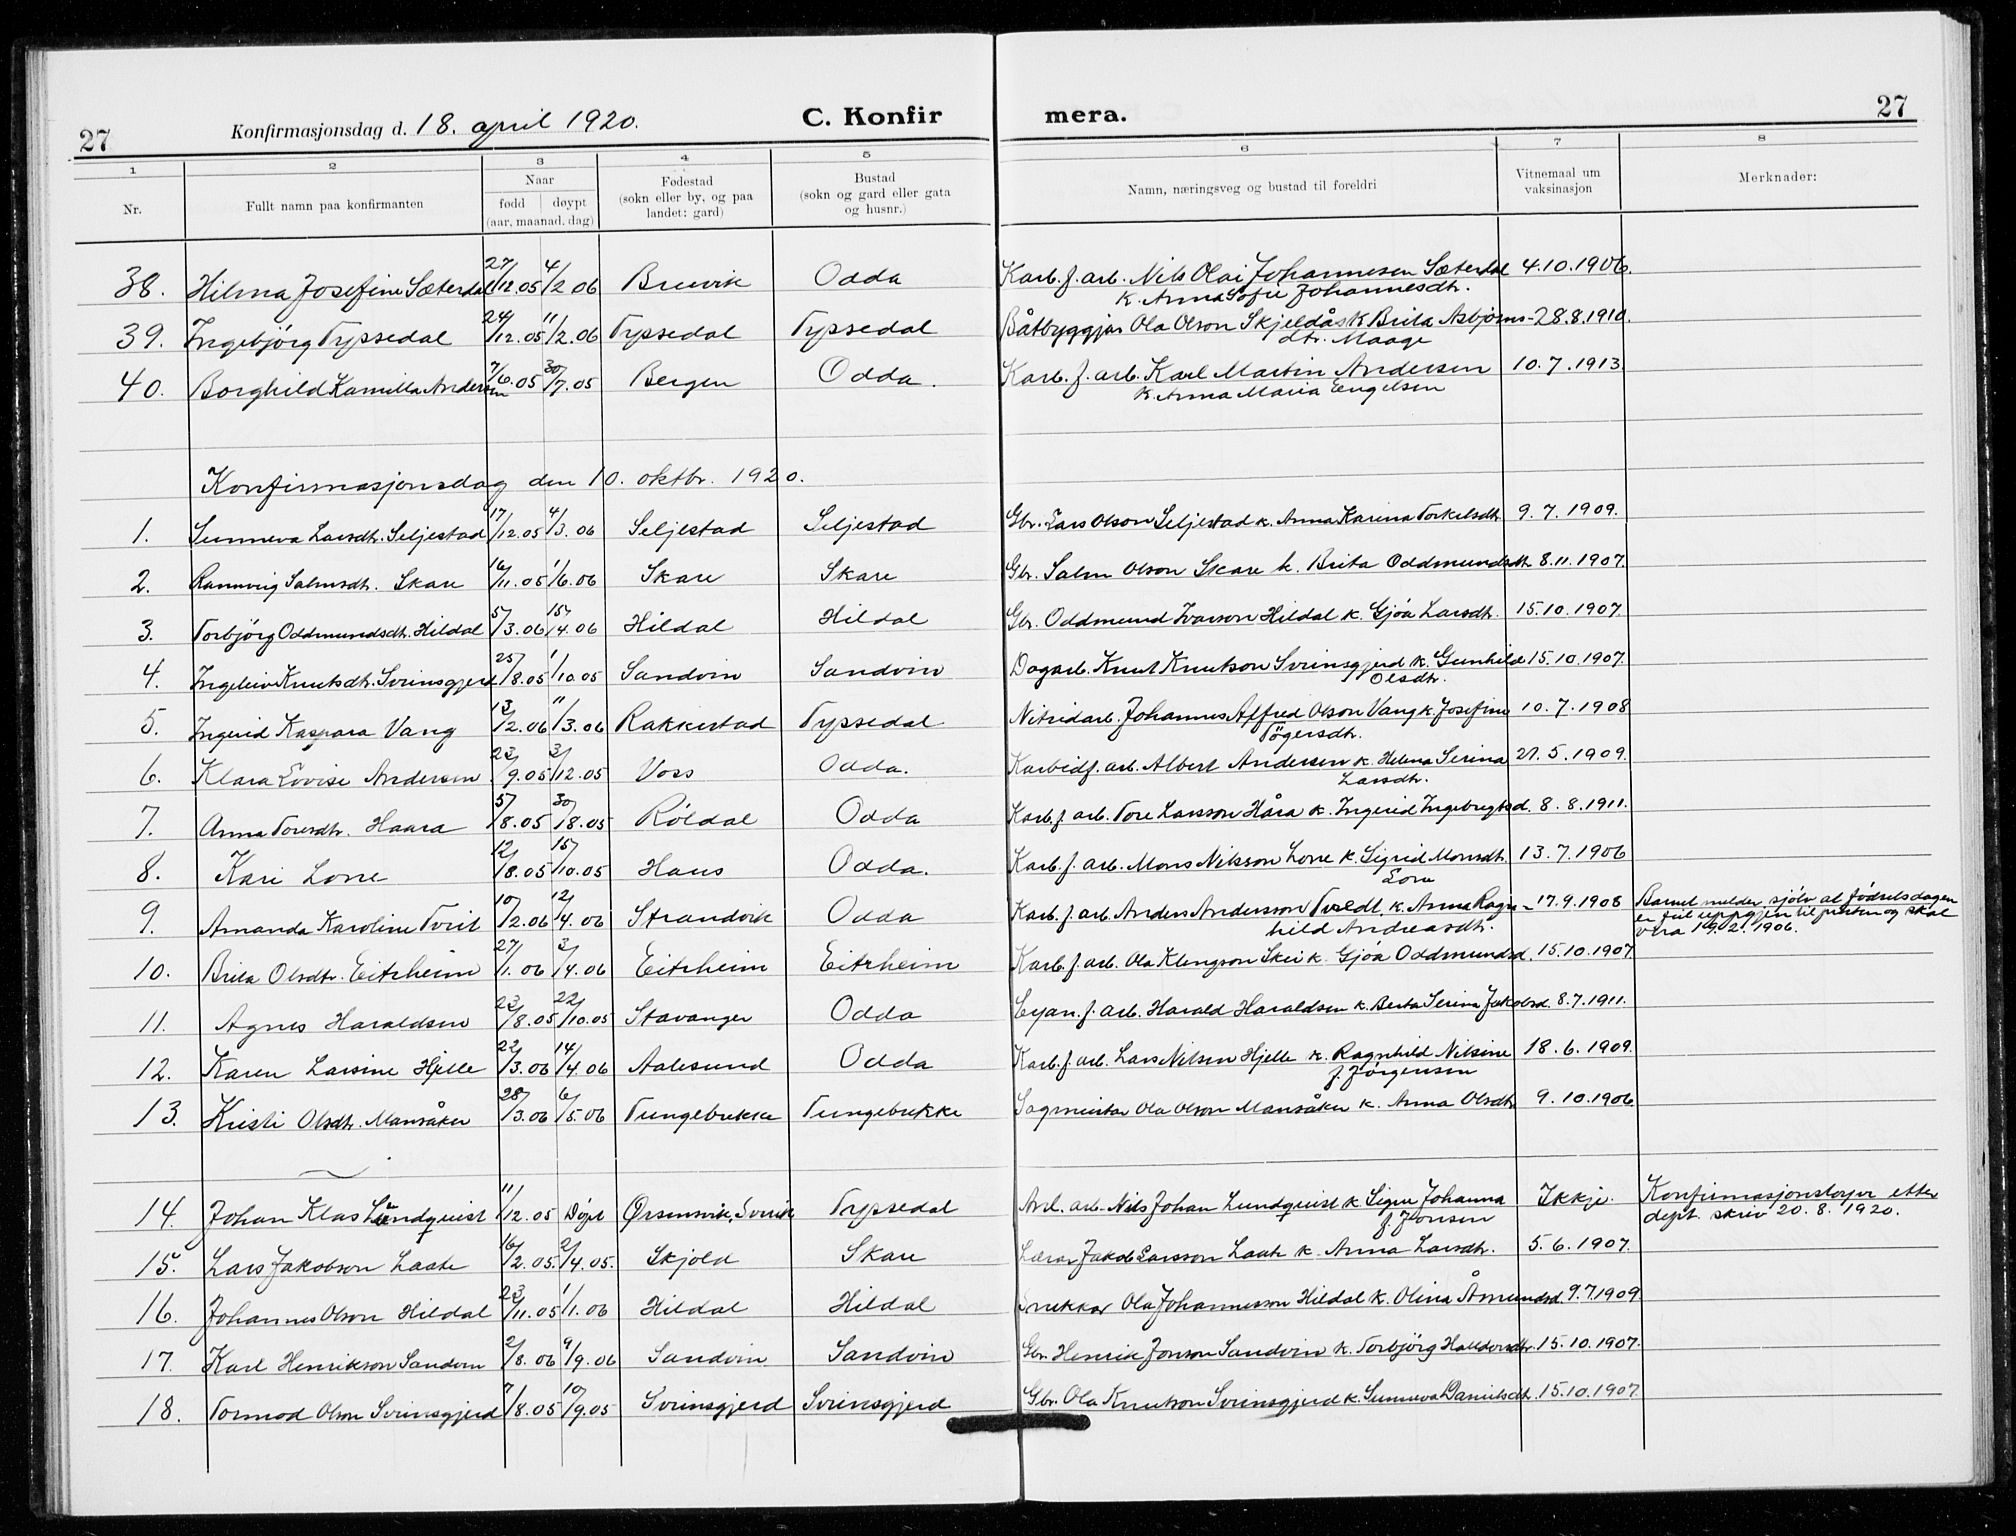 27 Konfirmasjonsdag d. 18. april 1920. C. Konfir mera. 27
1 2 3 4 5 6 7 8
Nr. Fullt namn paa konfirmanten Naar fødd døypt (aar, maanad. dag) Fødestad (sokn eller by, og paa landet: gard) Bustad (sokn og gard eller gata og husnr.) Namn, næringsveg og bustad til foreldri Vitnemaal um vaksinasjon Merknader:
38. Hilma Josefine Sæterdal 27/12.05 4/2 06 Brevik Odda Karb. f. arb. Nils Olai Johannesen Sæterdal 4.10.1906.
k. Anna Sofie Johannesdtr.
39. Ingebjörg Tyssedal 24/12.05 11/2.06 Tyssedal Tyssedal Båtbyggjar Ola Olson Skjeldås k Brita Asbjörns- 28.8.1910.
dtr. Maage
40. Borghild Kamilla Andersen 7/6.05 30/7.05 Bergen Odda. Karb. f. arb. Karl Martin Andersen 10.7.1913.
k. Anna Maria Engelsen
Konfirmasjonsdag den 10. oktbr. 1920.
1. Sunneva Larsdtr. Seljestad 17/12.05 4/3.06 Seljestad Seljestad Gbr. Lars Olson Seljestad k. Anna Karina Torkelsdtr. 9.7.1909.
2. Rannveig Salmsdtr. Skare 16/11.05 1/6.06 Skare Skare Gbr. Salm Olson Skare k. Brita Oddmundsdtr. 8.11.1907.
3. Torbjörg Oddmundsdtr. Hildal 5/3.06 15/4.06 Hildal Hildal Gbr. Oddmund Ivarson Hildal k. Gjöa Larsdtr. 15.10.1907.
4. Ingeleiv Knutsdtr. Sveinsgjerd 25/8.05 1/10.05 Sandvin Sandvin Dagarb. Knut Knutson Sveinsgjerd k. Gunhild 15.10.1907.
Olsdtr.
5. Ingerid Kaspara Vang 13/2.06 11/3.06 Rakkestad Tyssedal Nitridarb. Johannes Alfred Olson Vang k Josefine 10.7.1908
Tögersdtr.
6. Klara Lovise Andersen 23/9.05 3/12.05 Voss Odda. Karbidf. arb. Albert Andersen k. Helena Serina 21.5.1909.
Larsdtr.
7. Anna Toresdtr. Haara 5/8.05 30/8.05 Röldal Odda Karb. f. arb. Tore Larsson Håra k. Ingerid Ingebrigtsd. 8.8.1911.
8. Kari Lone 12/8.05 15/10.05 Haus Odda. Karb. f. arb. Mons Nilsson Lone k. Sigrid Monsdtr. 13.7.1906
Lone
9. Amanda Karoline Tveit 10/2.06 12/4.06 Strandvik Odda Karb. f. arb. Anders Andersson Tveidt k. Anna Ragn- 17.9.1908 Barnet melder sjölv at födselsdagen
hild Andreasdtr. er feil uppgjen til presten og skal
vera 19.2.1906.
10. Brita Olsdtr. Eitrheim 27/1.06 3/4.06 Eitrheim Eitrheim Karb. f. arb. Ola Klengson Skei k. Gjöa Oddmundsd. 15.10.1907
11. Agnes Haraldsen 23/8.05 22/10.05 Stavanger Odda Cyan. f. arb. Harald Haraldsen k. Berta Serina Jakobsd. 8.7.1911.
12. Karen Larsine Hjelle 22/3.06 14/4.06 Aalesund Odda Karb. f. arb. Lars Nilsen Hjelle k. Ragnhild Nilsine 18.6.1909.
f. Jörgensen
13. Kristi Olsdtr. Mansåker 28/3.06 6/5.06 Tungebrekke Tungebrekke Sagmeistar Ola Olson Mansåker k. Anna Olsdtr. 9.10.1906
14. Johan Klas Lundquist 11/12.05 Döpt Tyssedal Arb. arb. Nils Johan Lundquist k. Signe Johanna Ikkje. Konfirmasjonsløyve etter
f. Jonsen dept. skriv 20.8.1920.
15. Lars Jakobson Laate 16/2.05. 2/4.05. Skjold Skare Lærar Jakob Larsson Laate k. Anna Larsdtr. 5.6.1907.
16. Johannes Olson Hildal 23/11.05 1/1.06 Hildal Hildal Snekkar Ola Johannesson Hildal k. Olina Åmundsd. 9.7.1909
17. Karl Henrikson Sandvin 2/8.06 9/9.06 Sandvin Sandvin Gbr. Henrik Jonson Sandvin k. Torbjörg Halldorsdtr. 15.10.1907.
18. Tormod Olson Sveinsgjerd 7/8.05 10/9.05 Sveinsgjerd Sveinsgjerd Gbr. Ola Knutson Sveinsgjerd k. Sunneva Danielsdtr. 15.10.1907.